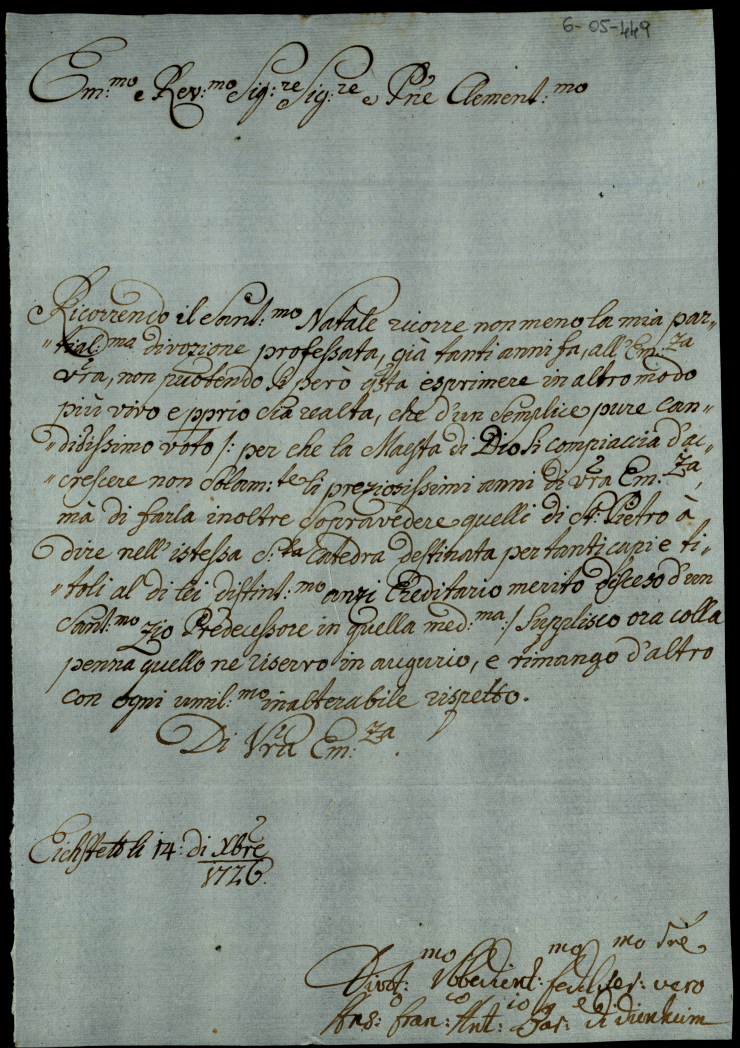 6-05-449
Em:mo e Rev:mo Sig:re Sig:re e Pñe Clement:mo
Ricorrendo il Sant:mo Natale ricorre non meno la mia par-
-tial:ma divozione professata, già tanti anni fa, all'Em:za
Vr̃a, non puotendosi però q̃sta esprimere in altro modo
più vivo e pprio sia realta, che d'un semplice pure can-
-didissimo voto /: per che la Maesta di Dio si compiaccia d'ac-
-crescere non solam:te li preziosissimi anni di Vr̃a Em:za,
mà di farla inoltre sopravedere quelli di St: Pietro à
dire nell'istessa S:ta Catedra destinata per tanti capi e ti-
-toli al di lei distint:mo anzi Ereditario merito disceso d'un
Sant:mo Zio Predecessore in quella med:ma :/ Supplisco ora colla
penna quello ne riservo in augurio, e rimango d'altro
con ogni umil:mo inalterabile rispetto.
Di Vr̃a Em:za.
Eichstett li 14: di Xbre
1726.
Divot:mo Obbedient:mo fedel:mo Ser:re vero
Ans: Fran:co Ant:io Bar:e di Dienheim